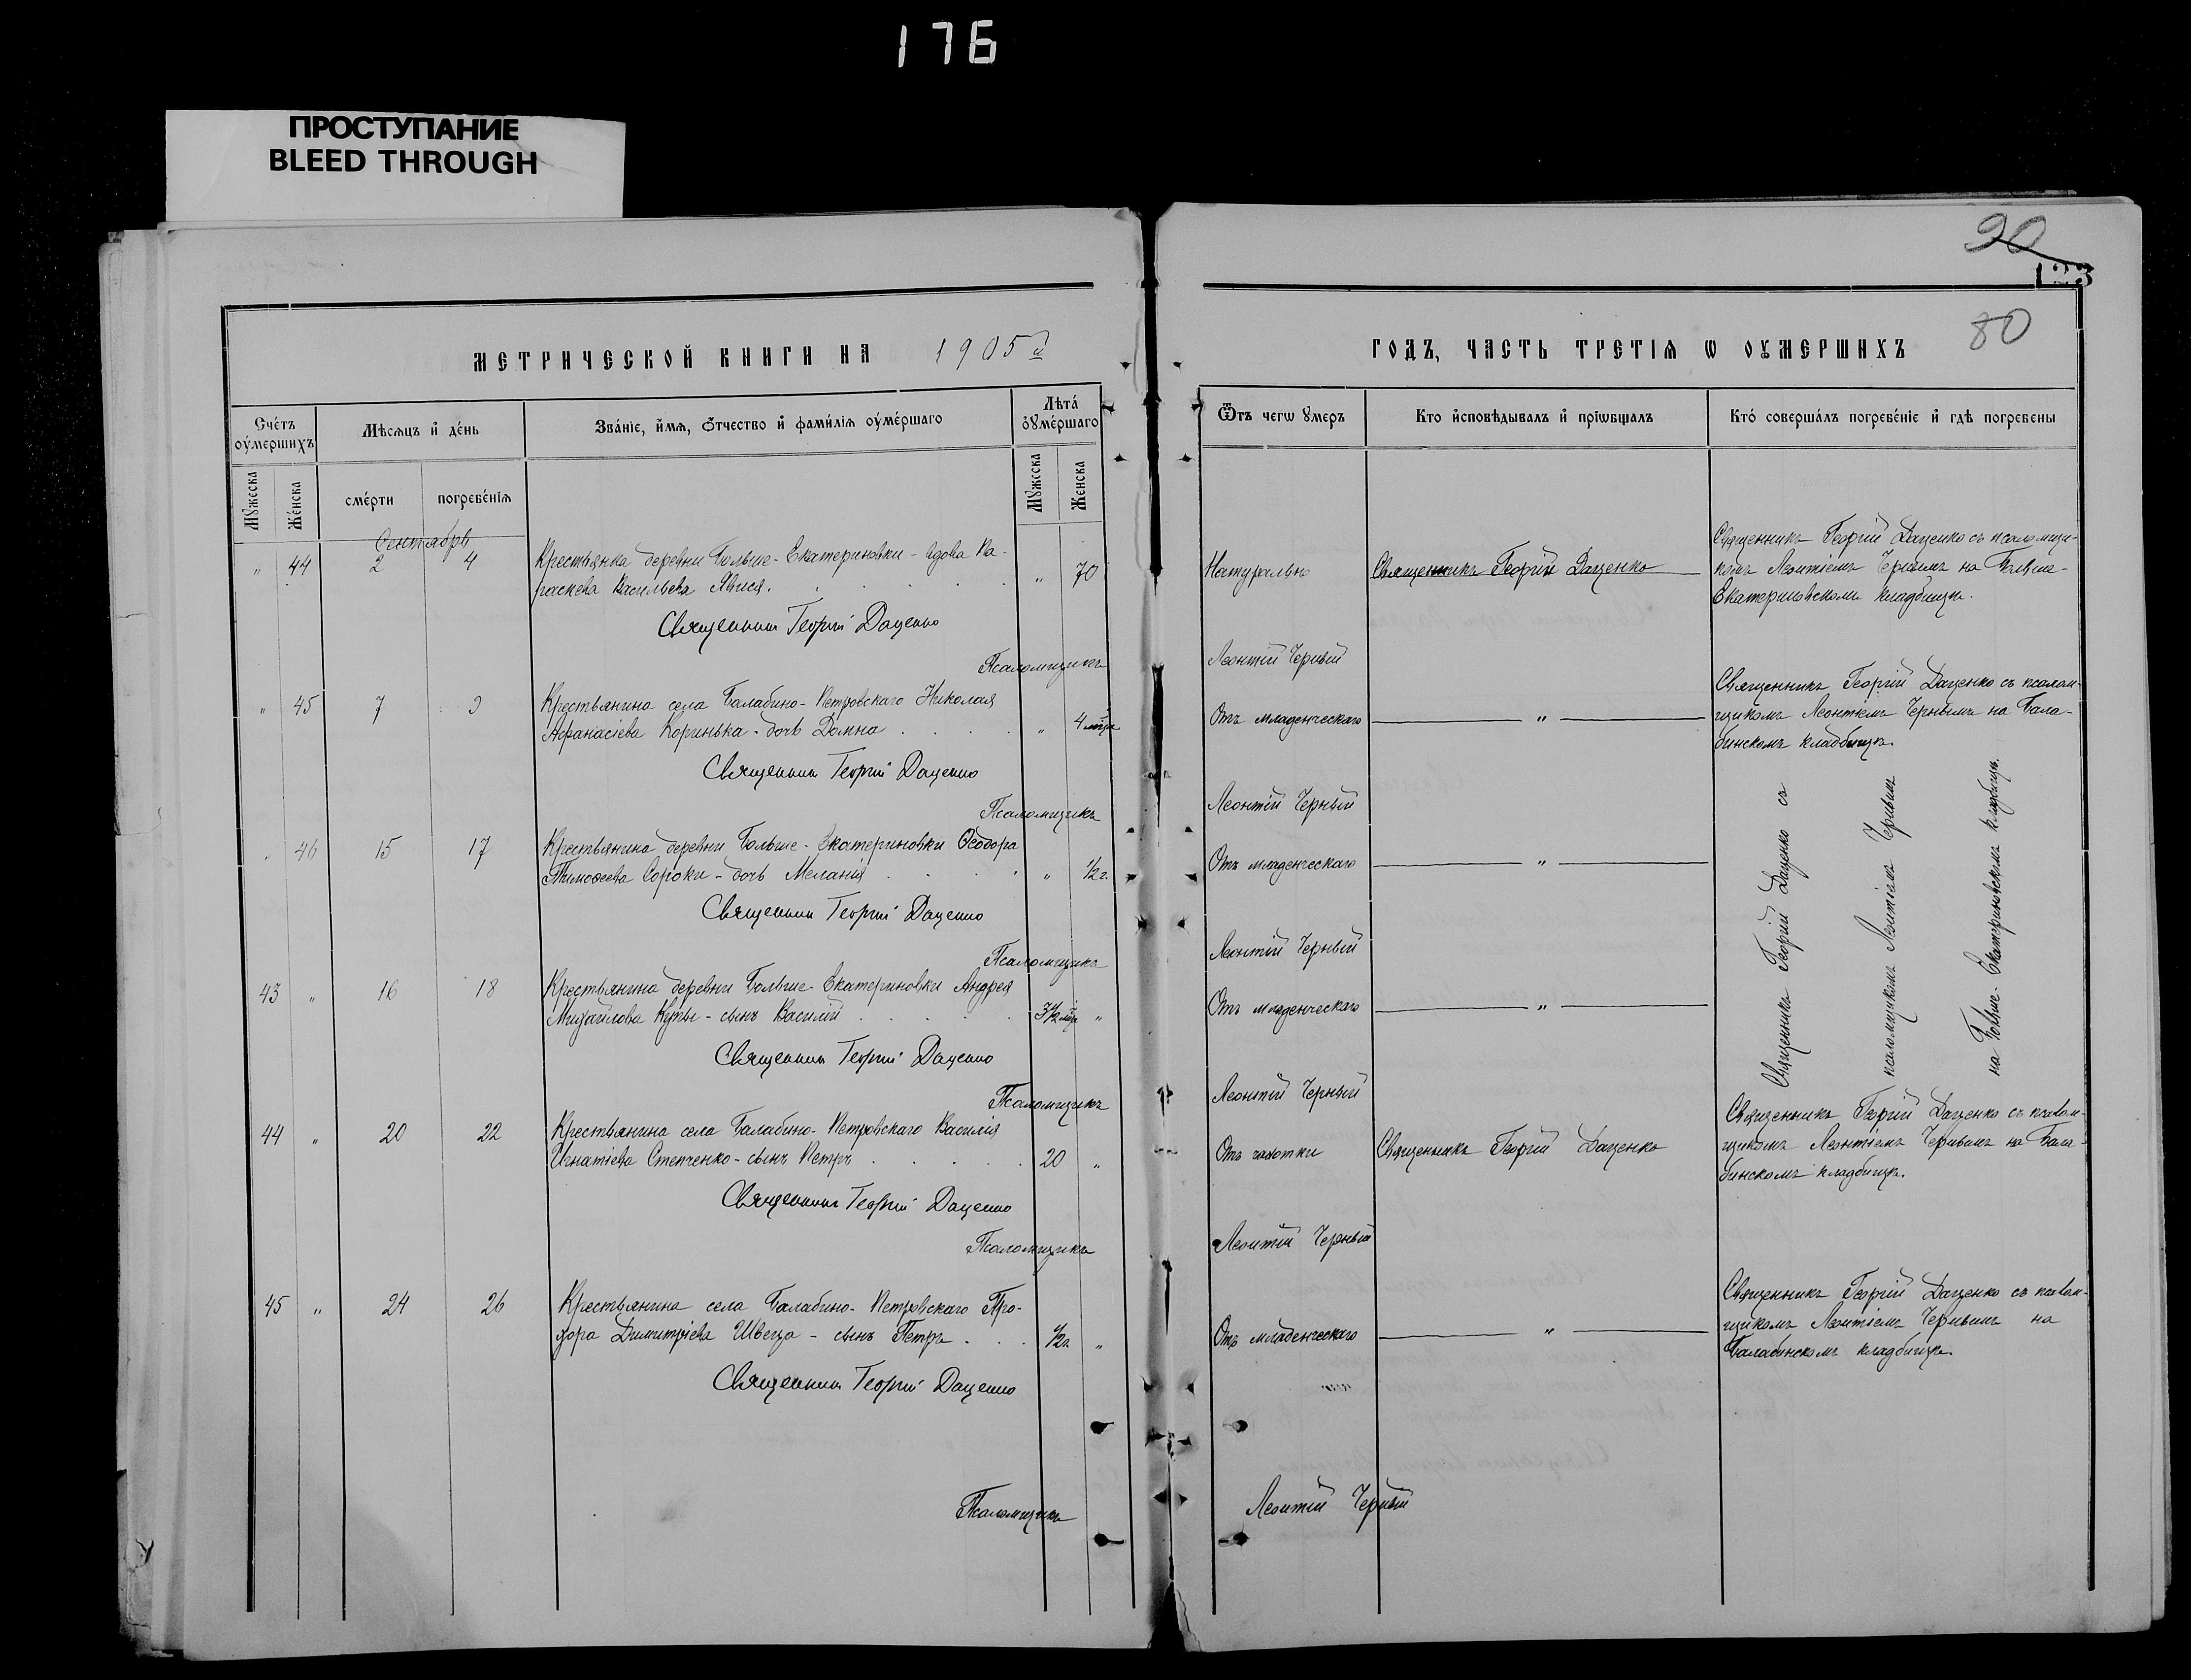 176
ПРОСТУПАНИЕ
BLEED THROUGH
90
123
80
МЕТРИЧЕСКОЙ КНИГИ НА 1905й
ГОДЪ, ЧАСТЬ ТРЕТІЯ Ѡ ОУМЕРШИХЪ
Счетъ оумершихъ
Мѣсяцъ и день
Званіе, имя, отчество и фамилія оумершаго
Лѣта оумершаго
Ѿтъ чегѡ умеръ
Кто исповѣдывалъ и пріѡбщалъ
Кто совершалъ погребеніе и гдѣ погребены
Мужеска
Женска
смерти
погребенія
Мужеска
Женска
Сентябрь
" 44 2 4 Крестьянка деревни Больше-Екатериновки - вдова Па-
раскева Васильева . . . " 70
Натурально
Священникъ Георгій Даценко
Священникъ Георгій Даценко съ псаломщи-
комъ Леонтіемъ Чернымъ на Больше-
Екатериновскомъ кладбищѣ.
Священникъ Георгій Даценко
Псаломщикъ Леонтій Черный
" 45 7 9 Крестьянина села Балабино-Петровскаго Николая
Афанасіева Коринька - дочь Домна . . . . " 4 мѣся
Отъ младенческаго
"
Священникъ Георгій Даценко съ псалом-
щикомъ Леонтіемъ Чернымъ на Бала-
бинскомъ кладбищѣ.
Священникъ Георгій Даценко
Псаломщикъ Леонтій Черный
" 46 15 17 Крестьянина деревни Больше-Екатериновки Ѳеодора
Тимоѳеева Сороки - дочь Меланія . . . . " 1/2 г.
Отъ младенческаго
"
Священникъ Георгій Даценко съ
псаломщикомъ Леонтіемъ Чернымъ
на Больше-Екатериновскомъ кладбищѣ.
Священникъ Георгій Даценко
Псаломщикъ Леонтій Черный
43 " 16 18 Крестьянина деревни Больше-Екатериновки Андрея
Михайлова Куты - сынъ Василій . . . . . 3 1/2 мѣся "
Отъ младенческаго
"
Священникъ Георгій Даценко
Псаломщикъ Леонтій Черный
44 " 20 22 Крестьянина села Балабино-Петровскаго Василія
Игнатіева Степченко - сынъ Петръ . . . . . 20 "
Отъ чахотки
Священникъ Георгій Даценко
Священникъ Георгій Даценко съ псалом-
щикомъ Леонтіемъ Чернымъ на Бала-
бинскомъ кладбищѣ.
Священникъ Георгій Даценко
Псаломщикъ Леонтій Черный
45 " 24 26 Крестьянина села Балабино-Петровскаго Про-
хора Димитріева Швеца - сынъ Петръ . . . 1/2 г. "
Отъ младенческаго
"
Священникъ Георгій Даценко съ псалом-
щикомъ Леонтіемъ Чернымъ на
Балабинскомъ кладбищѣ.
Священникъ Георгій Даценко
Псаломщикъ Леонтій Черный